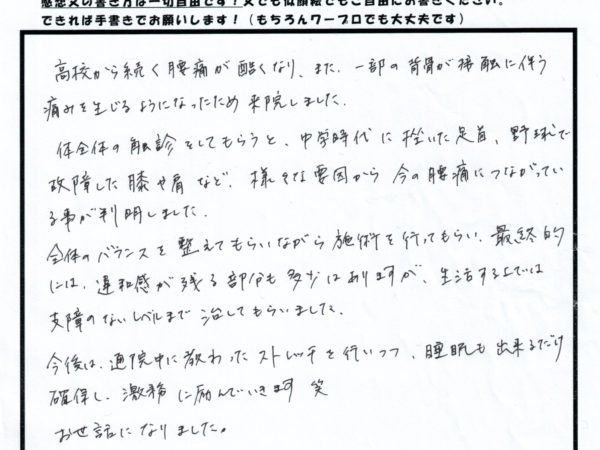 感想文の書き方は一切自由です！文でも似顔絵でもご自由にお書きください。
できれば手書きでお願いします！（もちろんワープロでも大丈夫です）
高校から続く腰痛が酷くなり、また、一部の背骨が接触に伴う
痛みを生じるようになったため来院しました。
体全体の触診をしてもらうと、中学時代に捻いた足首、野球で
故障した膝や肩など、様々な要因から今の腰痛につながってい
る事が判明しました。
全体のバランスを整えてもらいながら施術を行ってもらい、最終的
には、違和感が残る部分も多少はありますが、生活する上では
支障のないレベルまで治してもらいました。
今後は、通院中に教わったストレッチを行いつつ、睡眠も出来るだけ
確保し、激務に励んでいきます 笑
お世話になりました。